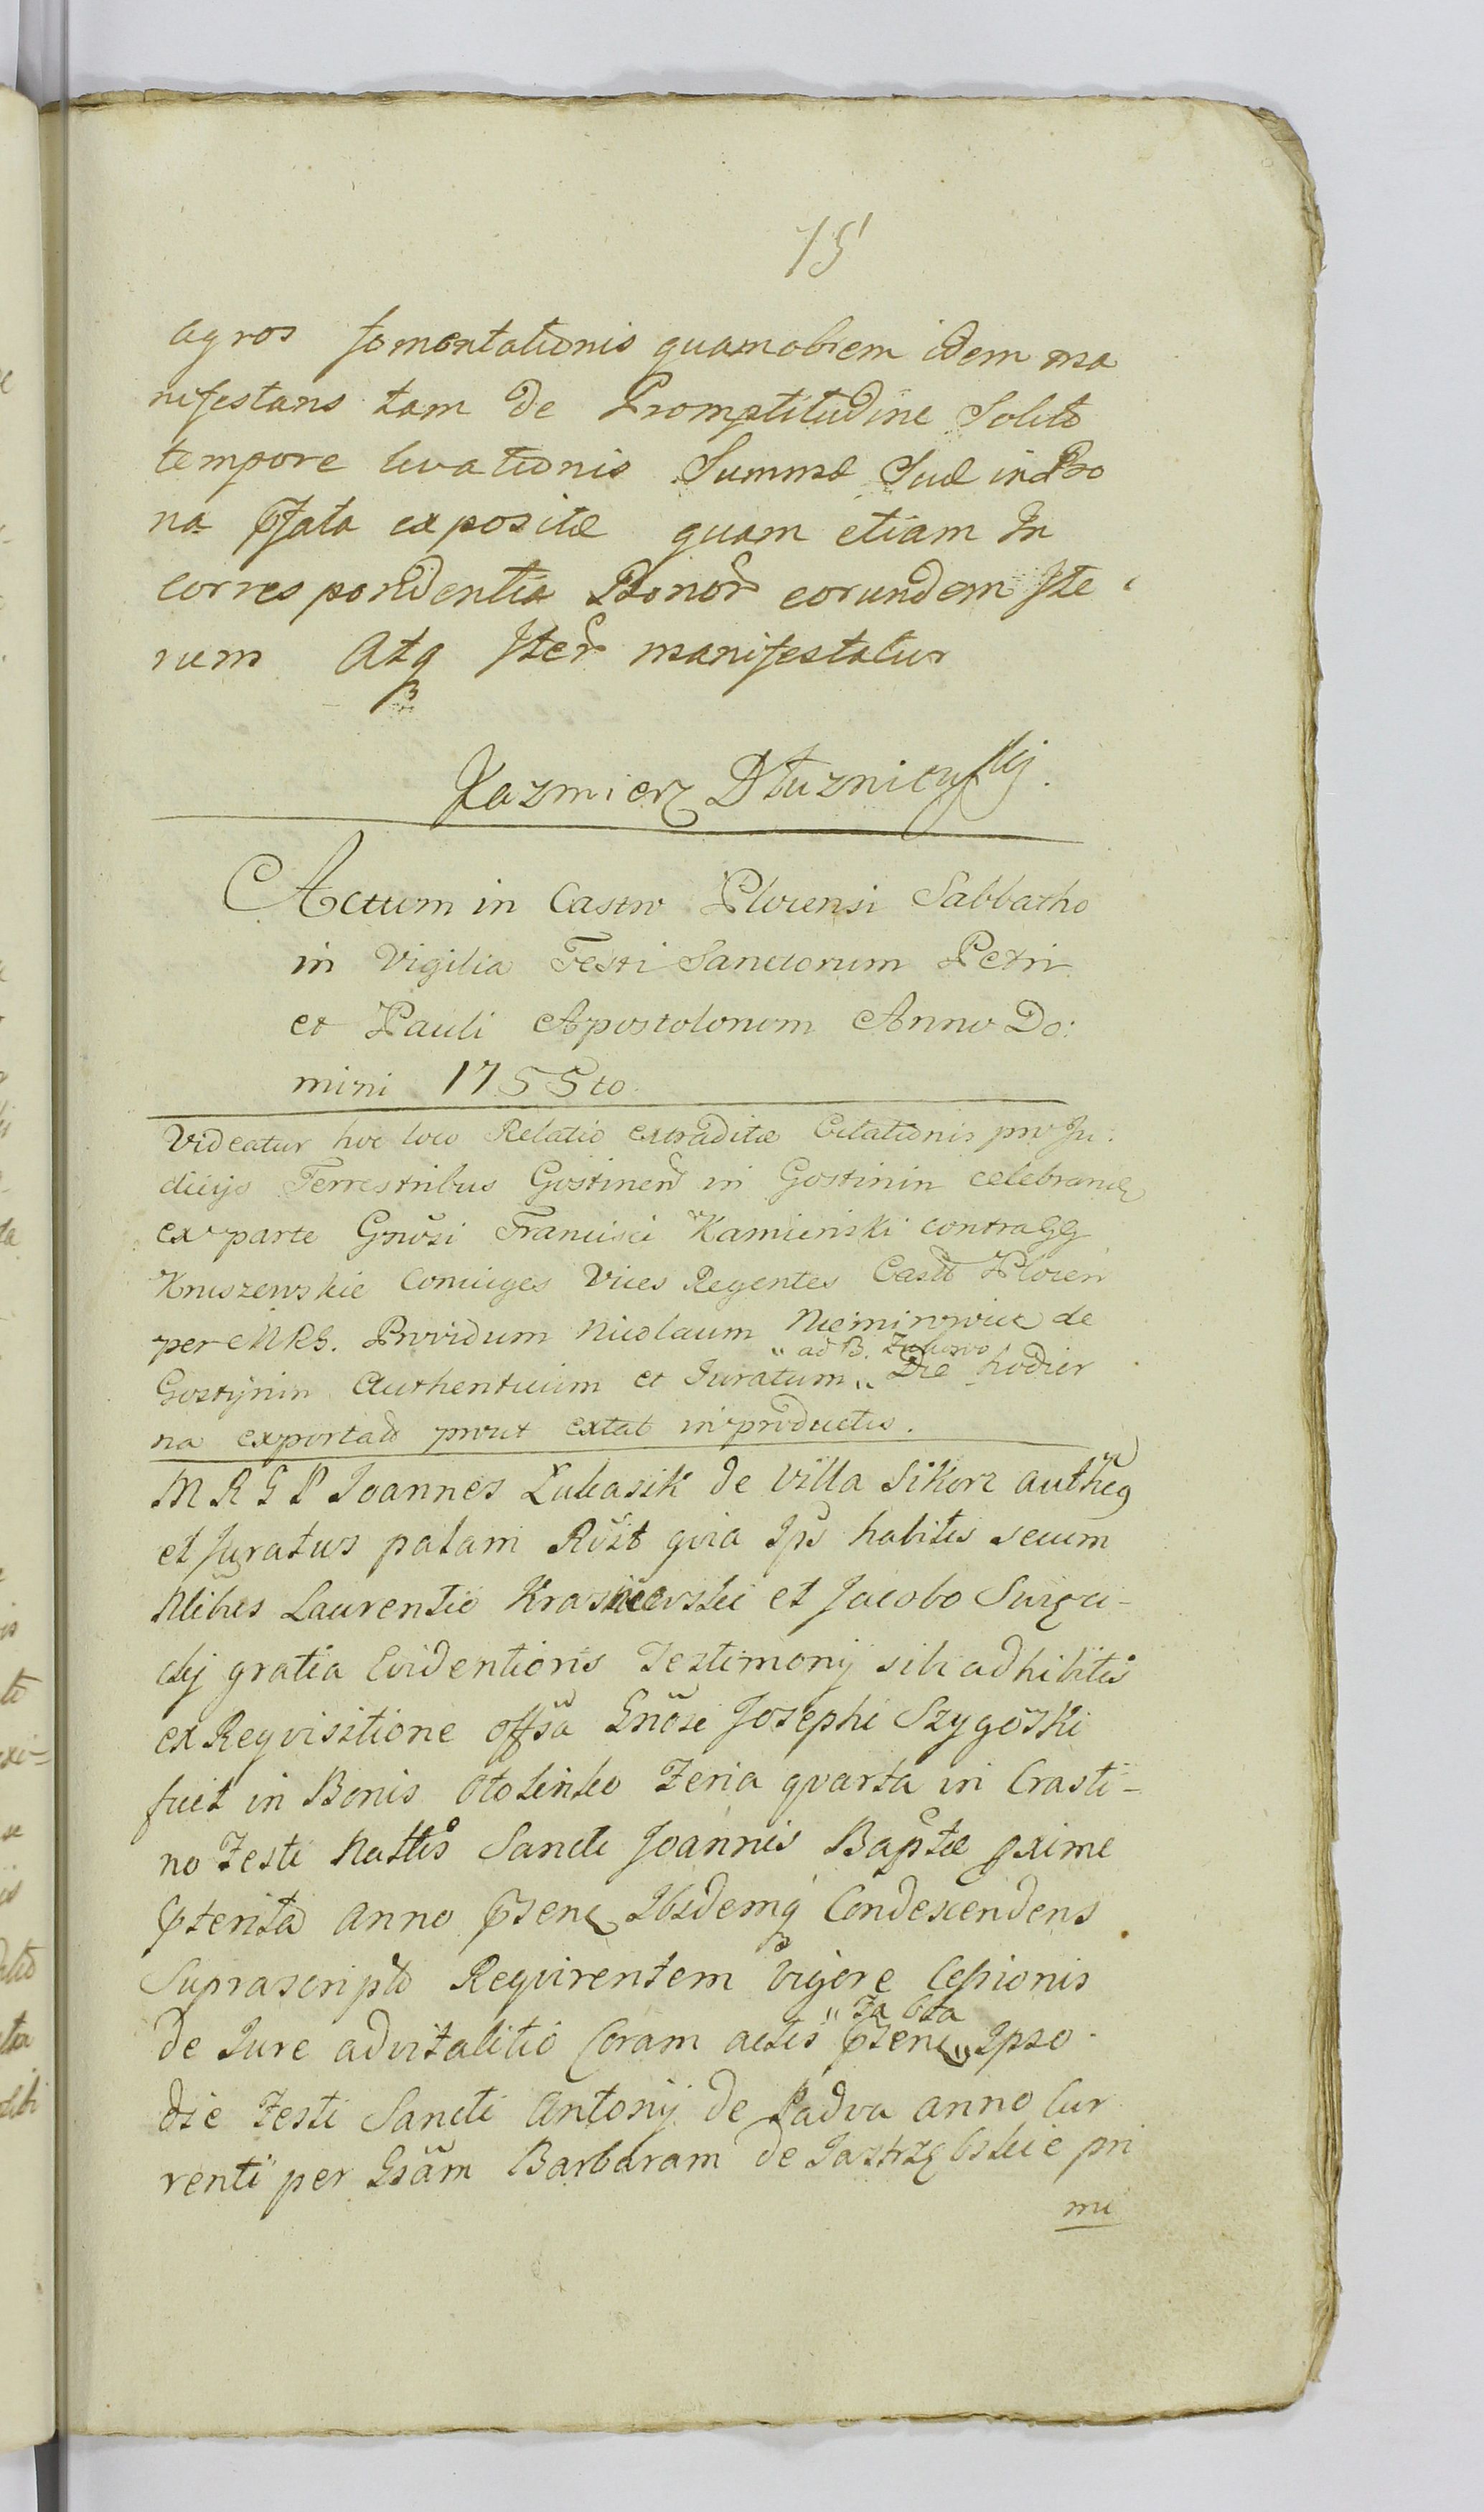 15
agros fomentationis quamobrem idem ma
nifestans tam de Promptitudine Solito
tempore levationis Summæ Suæ in Bo
na Pfata expositæ quam etiam In
correspondentia Bonor eorundem Ite
rum Atq Iter manifestatur
Kazmierz Dłuznieyskij.
Actum in Castro Plocensi Sabbatho
in Vigilia Festi Sanctorum Petri
et Pauli Apostolorum Anno Do:
mini 1755to
Videatur hoc loco Relatio extraditæ Citationis pro Ju:
dicijs Terrestribus Gostinen in Gostinin celebrand
ex parte Gnosi Francisci Kamienski contra GG
Kruszewskie Coniuges Vices Regentes Castr Plocen
per MRG. Providum Nicolaum Niemirowicz de
" ad B. Zukowo
Gostynin Authenticum et Iuratum " Die hodier
na exportata prout extat in productis.
M R G P Joannes Łukasik de Villa Sikorz autheg
et Juratus palam Rvit qvia Ips habitis secum
Nlibus Laurentio Krasniewski et Jacobo
gratia Evidentioris Testimonij sibi adhibitis
ex Reqvisitione offsa Gnosi Josephi Szygoski
fuit in Bonis Otolinko Feria qvarta in Crasti-
no Festi Nattis Sancti Joannis Baptæ pxime
Pterita anno Psenti Ibidemq Condescendens
Suprascripto Reqvirentem Vigore Cessionis
de Iure advitalitio Coram actis Psent " Ipso
die Festi Sancti Antonij de Padva anno Cur
renti per Gsam Barbaram de Jastrzębskie pri
mi